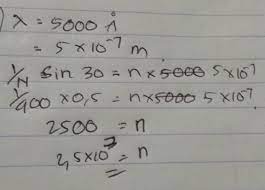 ) λ = 5000 Å
= 5 × 10⁻⁷ m
1/N sin 30 = n × 5000 5 × 10⁻⁷
1/400 × 0,5 = n × 5000 5 × 10⁻⁷
2500 = n
2,5 × 10³ = n